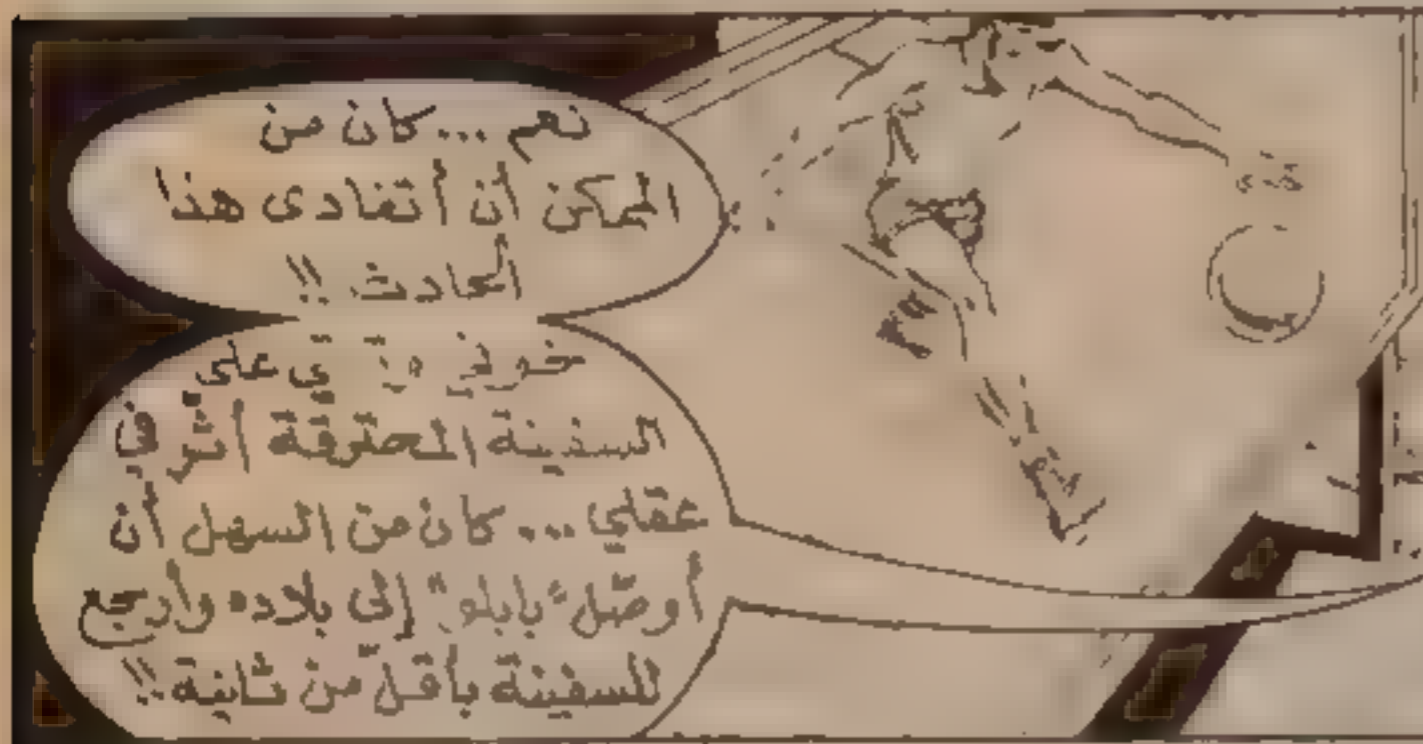 نعم ... كان من
الممكن أن أتفادى هذا
الحادث !!
خوفي من علي
السفينة المحترقة أثر في
عقلي ... كان من السهل أن
أوصّل "بابلو" إلى بلاده وأرجع
للسفينة بأقلّ من ثانية !!